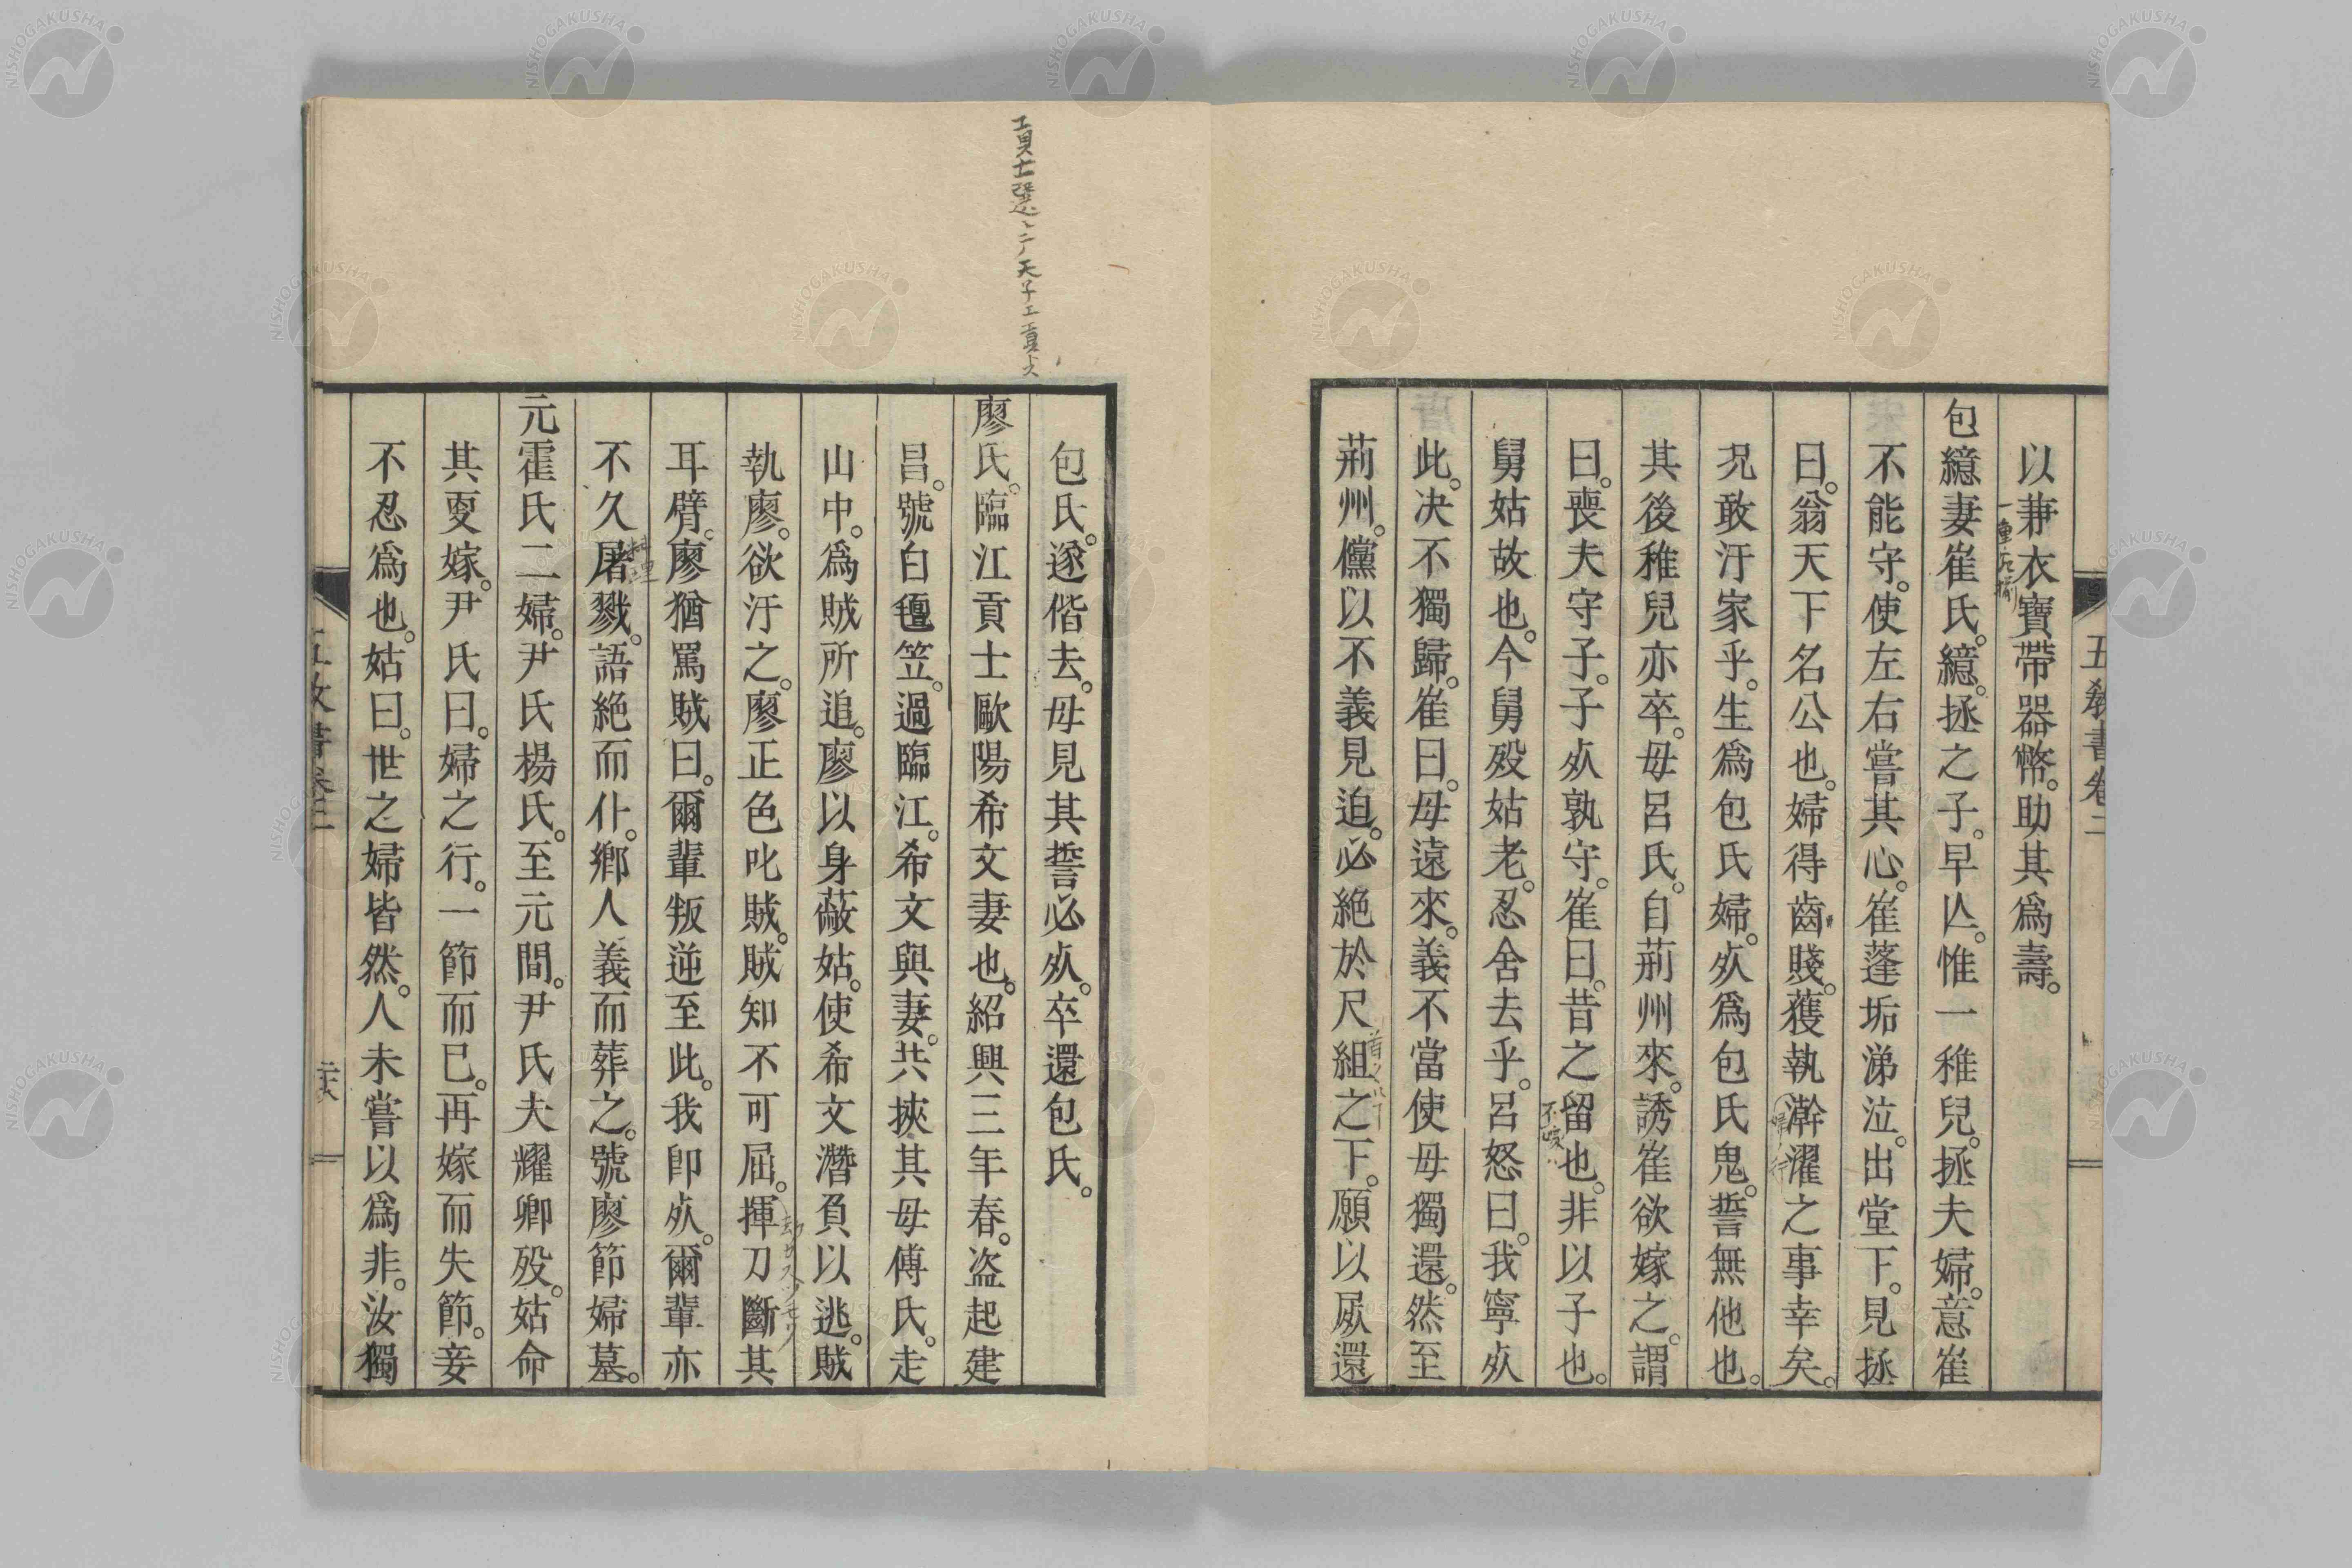 五敎書卷二
以兼衣寶帶器幣。助其爲壽。
包繶妻崔氏。繶。拯之子。早亾。惟一稚兒。拯夫婦。意崔
不能守。使左右嘗其心。崔蓬垢涕泣。出堂下。見拯
曰。翁天下名公也。婦得齒賤。獲執澣濯之事幸矣。
況敢汙家乎。生爲包氏婦。死爲包氏鬼。誓無他也。
其後稚兒亦卒。母呂氏。自荊州來。誘崔欲嫁之。謂
曰。喪夫守子。子死孰守。崔曰。昔之留也。非以子也。
舅姑故也。今舅歿姑老。忍舍去乎。呂怒曰。我寧死
此。決不獨歸。崔曰。母遠來。義不當使母獨還。然至
荊州。儻以不義見迫。必絕於尺組之下。願以屍還
包氏。遂偕去。母見其誓必死。卒還包氏。
廖氏。臨江貢士歐陽希文妻也。紹興三年春。盜起建
昌。號白氊笠。過臨江。希文與妻。共挾其母傅氏。走
山中。爲賊所追。廖以身蔽姑。使希文潛負以逃。賊
執廖。欲汙之。廖正色叱賊。賊知不可屈。揮刀斷其
耳臂。廖猶罵賊曰。爾輩叛逆至此。我卽死。爾輩亦
不久屠戮。語絕而仆。鄉人義而葬之。號廖節婦墓。
元霍氏二婦。尹氏楊氏。至元間。尹氏夫耀卿歿。姑命
其更嫁。尹氏曰。婦之行。一節而已。再嫁而失節。妾
不忍爲也。姑曰。世之婦皆然。人未嘗以爲非。汝獨
NISHOGAKUSHA